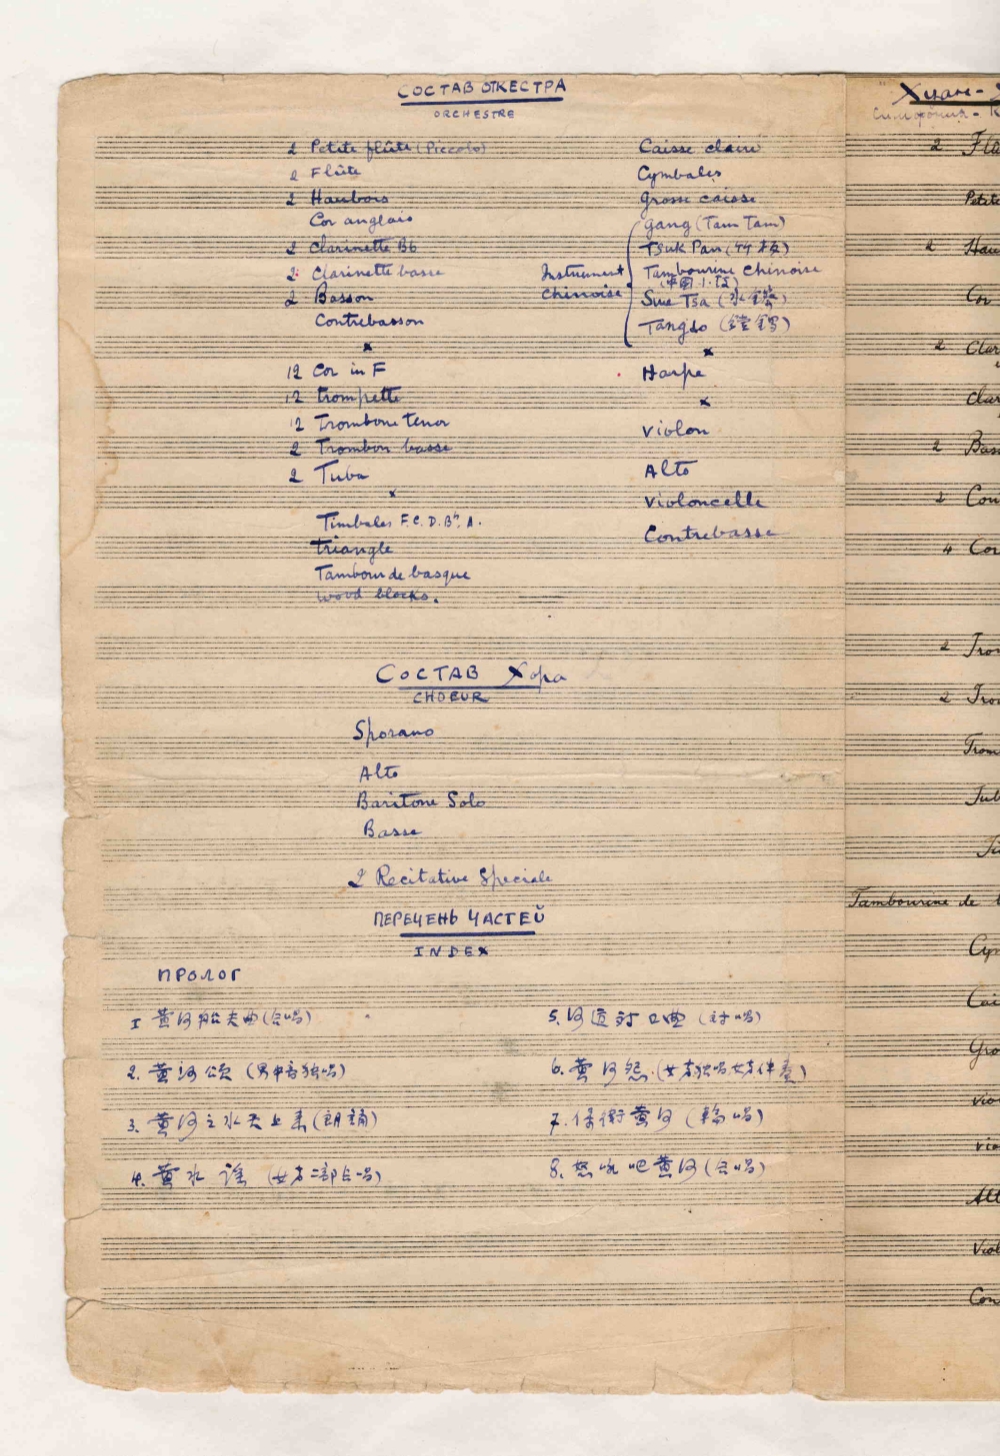 СОСТАВ ОТКЕСТРА
ORCHESTRE
2 Petite flûte (Piccolo)
2 Flûte
2 Hautbois
Cor anglais
2 Clarinette Bb
2 Clarinette basse
2 Basson
Contrebasson
x
12 Cor in F
12 trompette
12 Trombone tenor
2 Trombon basse
2 Tuba
x
Timbales F. C. D. Bb. A.
triangle
Tambour de basque
wood blocks.
Caisse claire
Cymbales
Grosse caisse
Instrument chinoise
Gang (Tam Tam)
Tsuk Pan (竹板)
Tambourine chinoise
(中國小鼓)
Sue Tsa (水鑔)
Tanglo (鏜鑼)
x
Harpe
x
Violon
Alto
Violoncelle
Contrebasse
СОСТАВ Хора
CHOEUR
Sporano
Alto
Baritone Solo
Basse
2 Recitative Speciale
ПЕРЕЧЕНЬ ЧАСТЕЙ
INDEX
ПРОЛОГ
1 黄河船夫曲(合唱)
2. 黄河頌 (男中音独唱)
3. 黄河之水天上来(朗誦)
4. 黄水謠 (女声二部合唱)
5. 河邊對口曲 (對唱)
6. 黄河怨. (女声独唱女声伴奏)
7. 保衛黄河 (輪唱)
8. 怒吼吧黄河(合唱)
Хуан-
Симфония - К
2 Flû
Petite
2 Hau
Cor
2 Clar
clar
2 Bas
2 Con
4 Cor
2 Tro
2 Tro
Trom
Tub
Tambourine de
Cym
Cai
Gro
Vio
Vio
Alt
Viol
Con